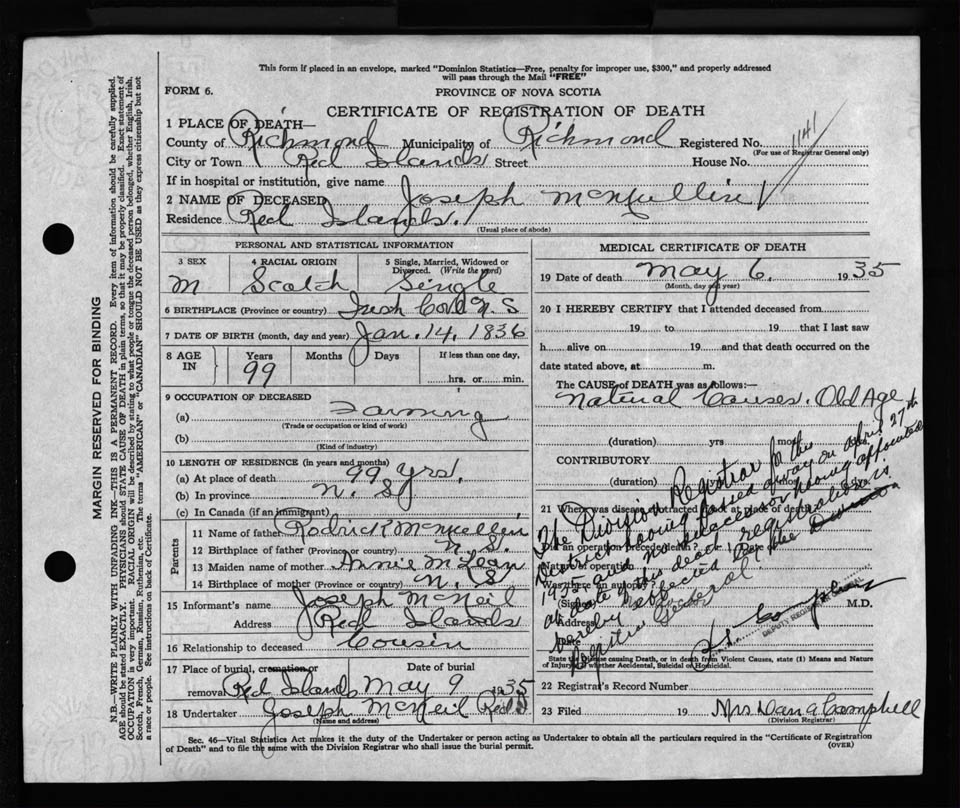 This form if placed in an envelope, marked "Dominion Statistics—Free, penalty for improper use, $300," and properly addressed
will pass through the Mail "FREE"
FORM 6.
PROVINCE OF NOVA SCOTIA
CERTIFICATE OF REGISTRATION OF DEATH
1 PLACE OF DEATH—
County of Richmond Municipality of Richmond Registered No. 1141
(For use of Registrar General only)
City or Town Red Islands Street House No.
If in hospital or institution, give name
2 NAME OF DECEASED Joseph McMullin
Residence Red Islands.
(Usual place of abode)
PERSONAL AND STATISTICAL INFORMATION
3 SEX 4 RACIAL ORIGIN 5 Single, Married, Widowed or
Divorced. (Write the word)
M Scotch Single
6 BIRTHPLACE (Province or country) Irish Cove N S
7 DATE OF BIRTH (month, day and year) Jan. 14, 1836
8 AGE IN Years Months Days If less than one day,
99 hrs. or min.
9 OCCUPATION OF DECEASED
(a) Farming
(Trade or occupation or kind of work)
(b)
(Kind of industry)
10 LENGTH OF RESIDENCE (in years and months)
(a) At place of death 99 yrs.
(b) In province N. S
(c) In Canada (if an immigrant)
Parents
11 Name of father Rodrick McMullin
12 Birthplace of father (Province or country) N S.
13 Maiden name of mother Annie McLean
14 Birthplace of mother N. S
15 Informant's name Joseph McNeil
Address Red Islands
16 Relationship to deceased Cousin
17 Place of burial, cremation or Date of burial
removal Red Islands May 9 1935
18 Undertaker Joseph McNeil Red I
(Name and address)
MEDICAL CERTIFICATE OF DEATH
19 Date of death May 6. 1935
(Month, day and year)
20 I HEREBY CERTIFY that I attended deceased from
19 to 19 that I last saw
h alive on 19 and that death occurred on the
date stated above, at m.
The CAUSE of DEATH was as follows:
Natural Causes. Old Age
(duration) yrs. mos.
CONTRIBUTORY
(duration)
21 Where was disease contracted
Did an operation precede death?
Nature of operation
Was there an autopsy?
(Signed) M.D.
Address
State the Disease causing Death, or in death from Violent Causes, state (1) Means and Nature
of Injury, Whether Accidental, Suicidal or Homicidal.
The Division Registrar for this
District having passed away on April 27th
1935 and no replacement having appointed
at date of this death, registration is
hereby effected by the
Registrar General
DEPUTY REGISTRAR GENERAL
22 Registrar's Record Number
23 Filed 19 Mrs Dan A Campbell
(Division Registrar)
Sec. 46—Vital Statistics Act makes it the duty of the Undertaker or person acting as Undertaker to obtain all the particulars required in the "Certificate of Registration
of Death" and to file the same with the Division Registrar who shall issue the burial permit.
(OVER)
MARGIN RESERVED FOR BINDING
N.B.—WRITE PLAINLY WITH UNFADING INK—THIS IS A PERMANENT RECORD. Every item of information should be carefully supplied.
AGE should be stated EXACTLY. PHYSICIANS should STATE CAUSE OF DEATH in plain terms, so that it may be properly classified. Exact statement of
OCCUPATION is very important. RACIAL ORIGIN will be described by stating to what people or tongue the deceased person belonged, whether English, Irish,
Scotch, French, German, Russian, Ruthenian, etc. The terms "AMERICAN" or "CANADIAN" SHOULD NOT BE USED as they express citizenship but not
a race or people. See instructions on back of Certificate.